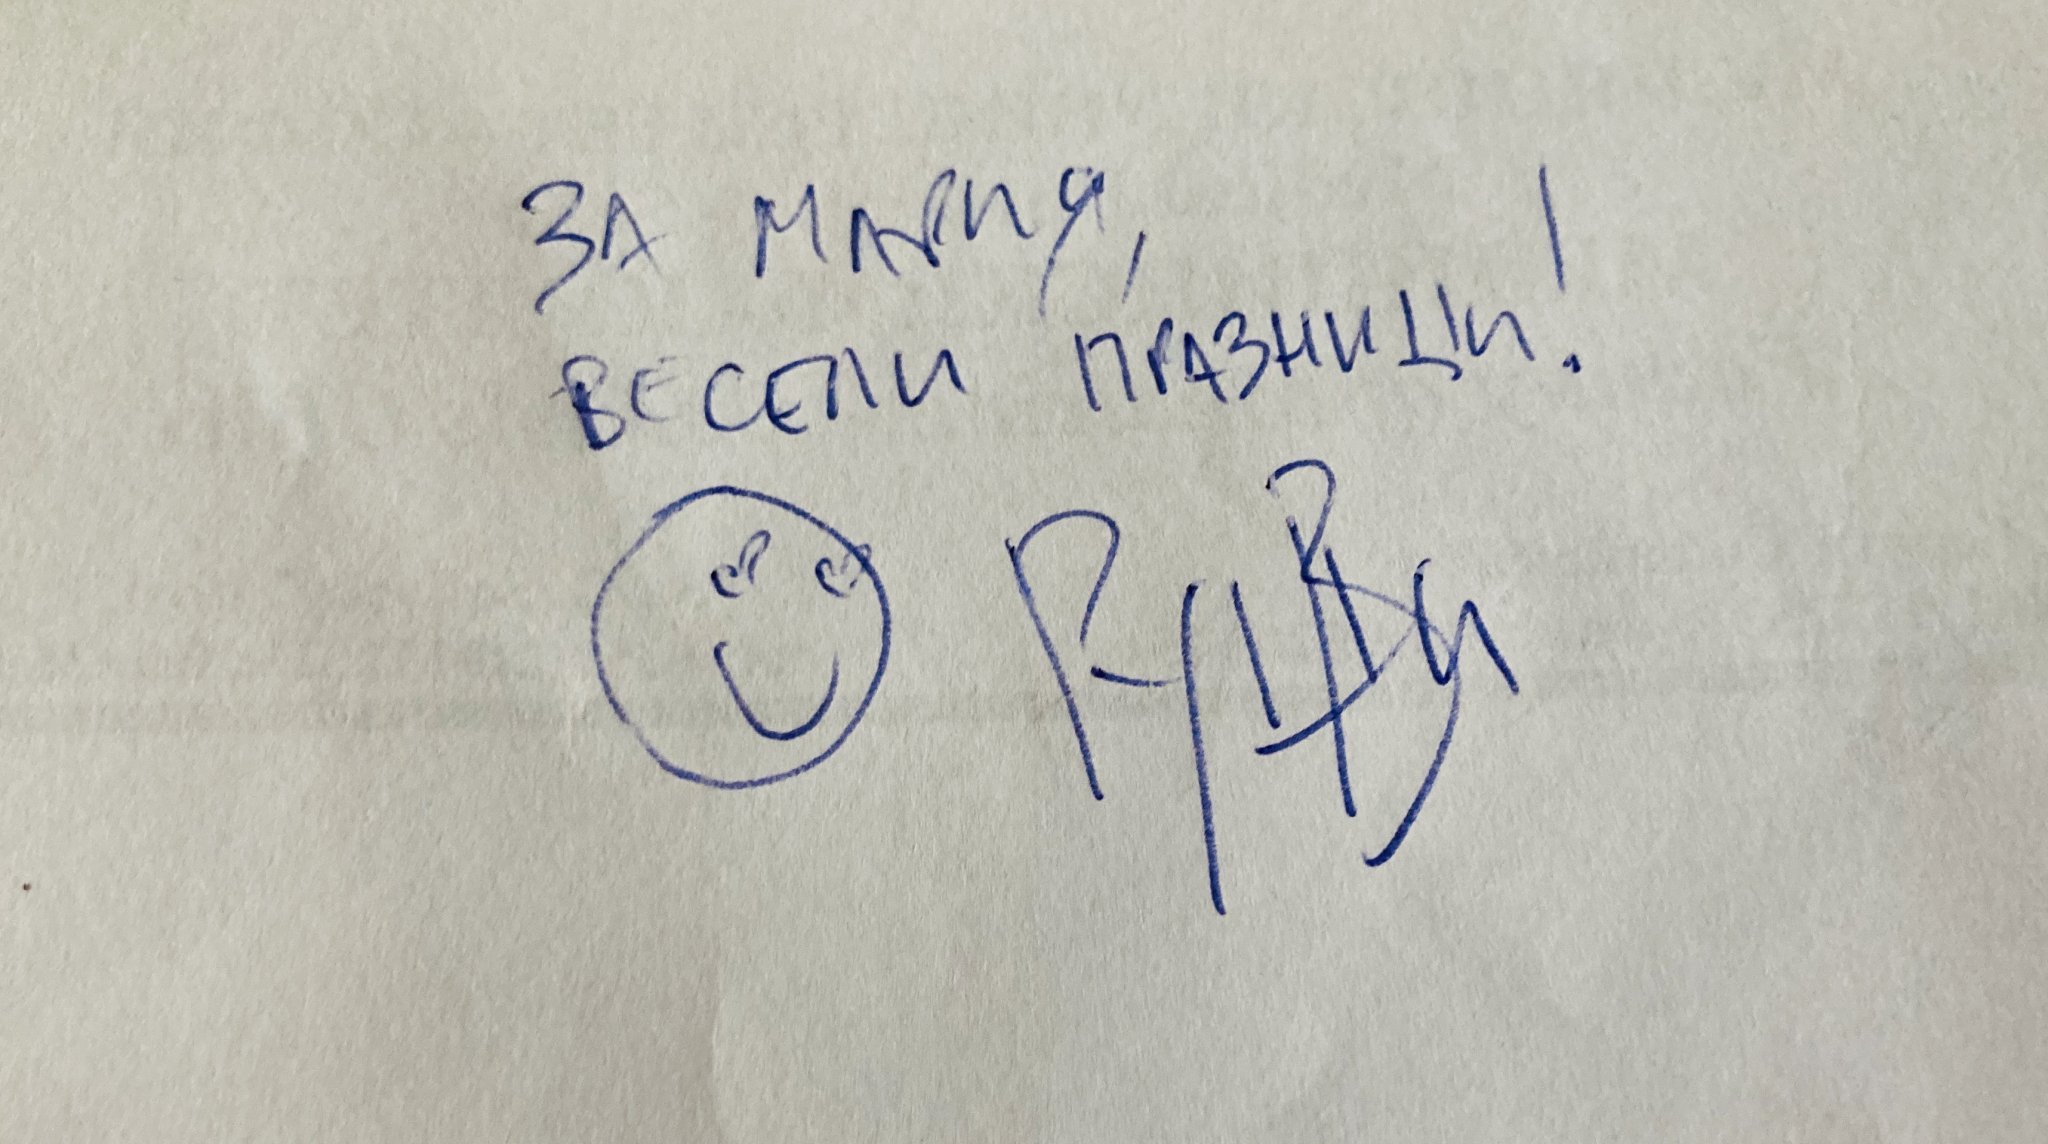 ЗА МАРИЯ,
ВЕСЕЛИ ПРАЗНИЦИ!